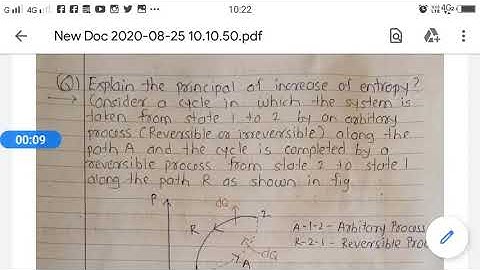 4G 10:22 4G
New Doc 2020-08-25 10.10.50.pdf
Q) Explain the principal of increase of entropy?
Consider a cycle in which the system is
taken from state 1 to 2 by an arbitory
process (Reversible or irreversible) along the
00:09
path A and the cycle is completed by a
reversible process from state 2 to state 1
along the path R as shown in fig
P dQ 2
R
A-1-2- Arbitory Process
R-2-1- Reversible Pro
dQ
A